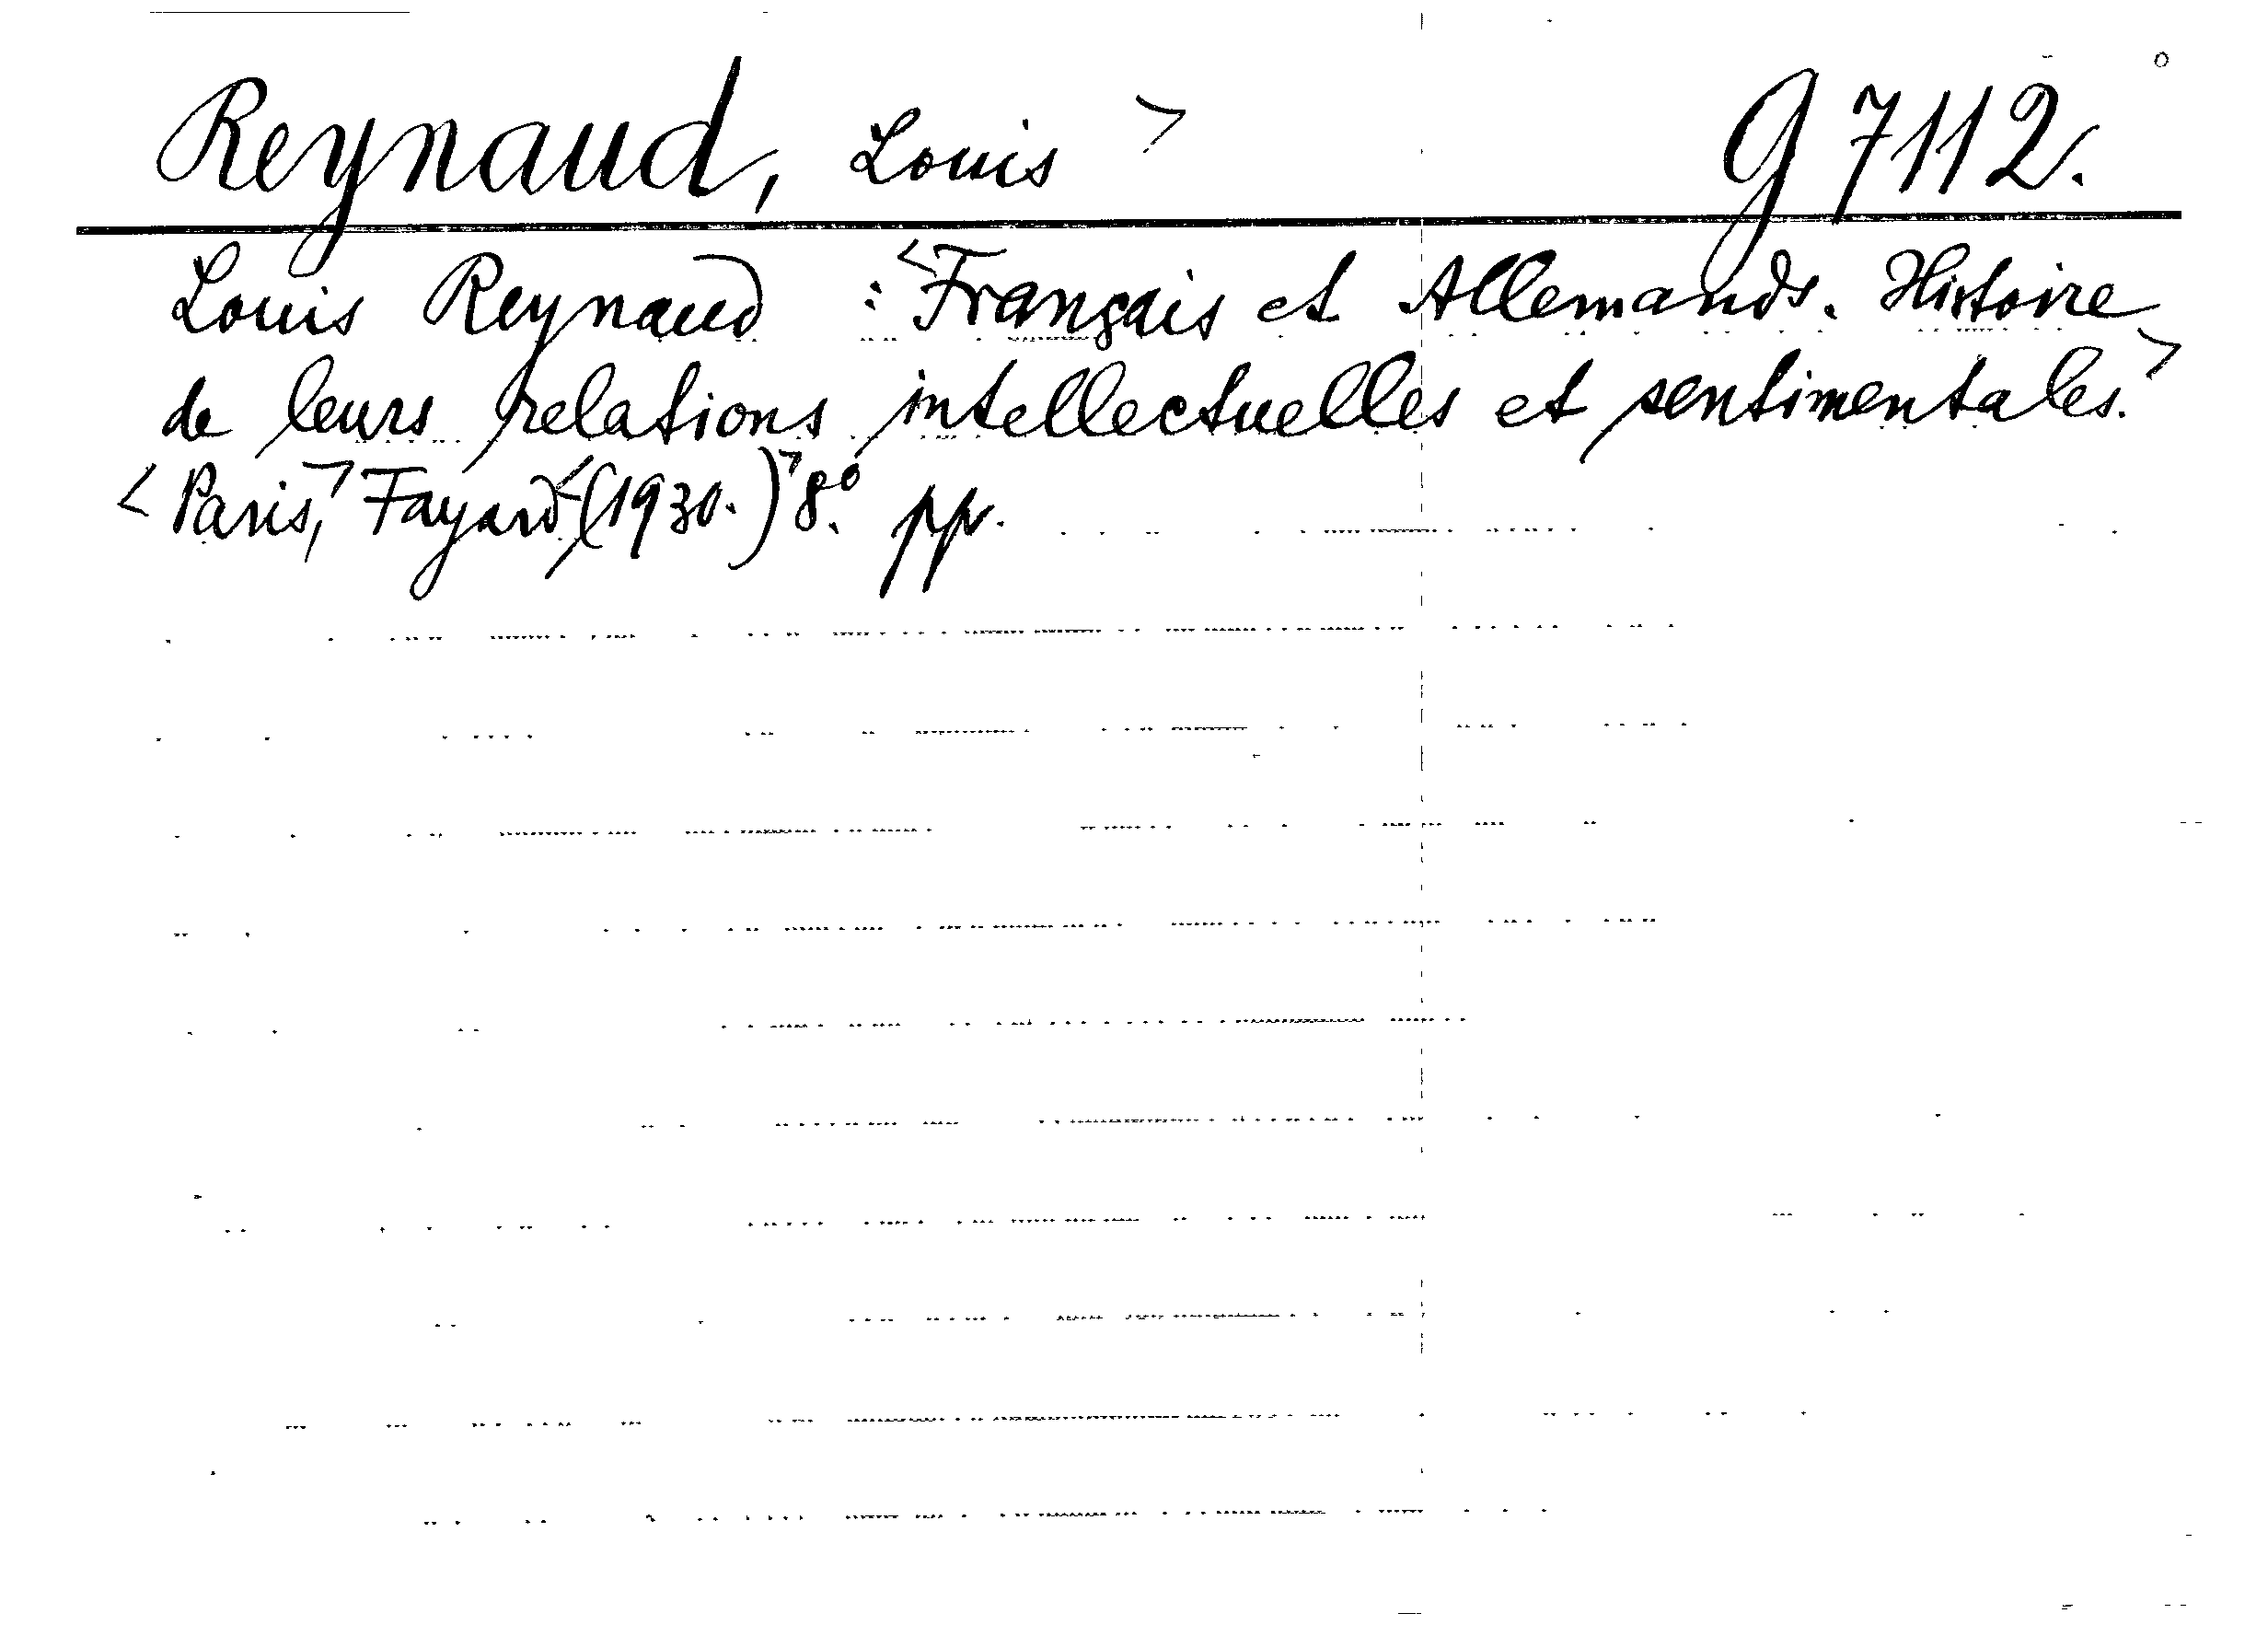 Reynaud, Louis > g 7112.
Louis Reynaud : <Français et Allemands. Histoire
de leurs relations intellectuelles et sentimentales.>
<Paris,> Fayard <(1930.)> 8.° pp.